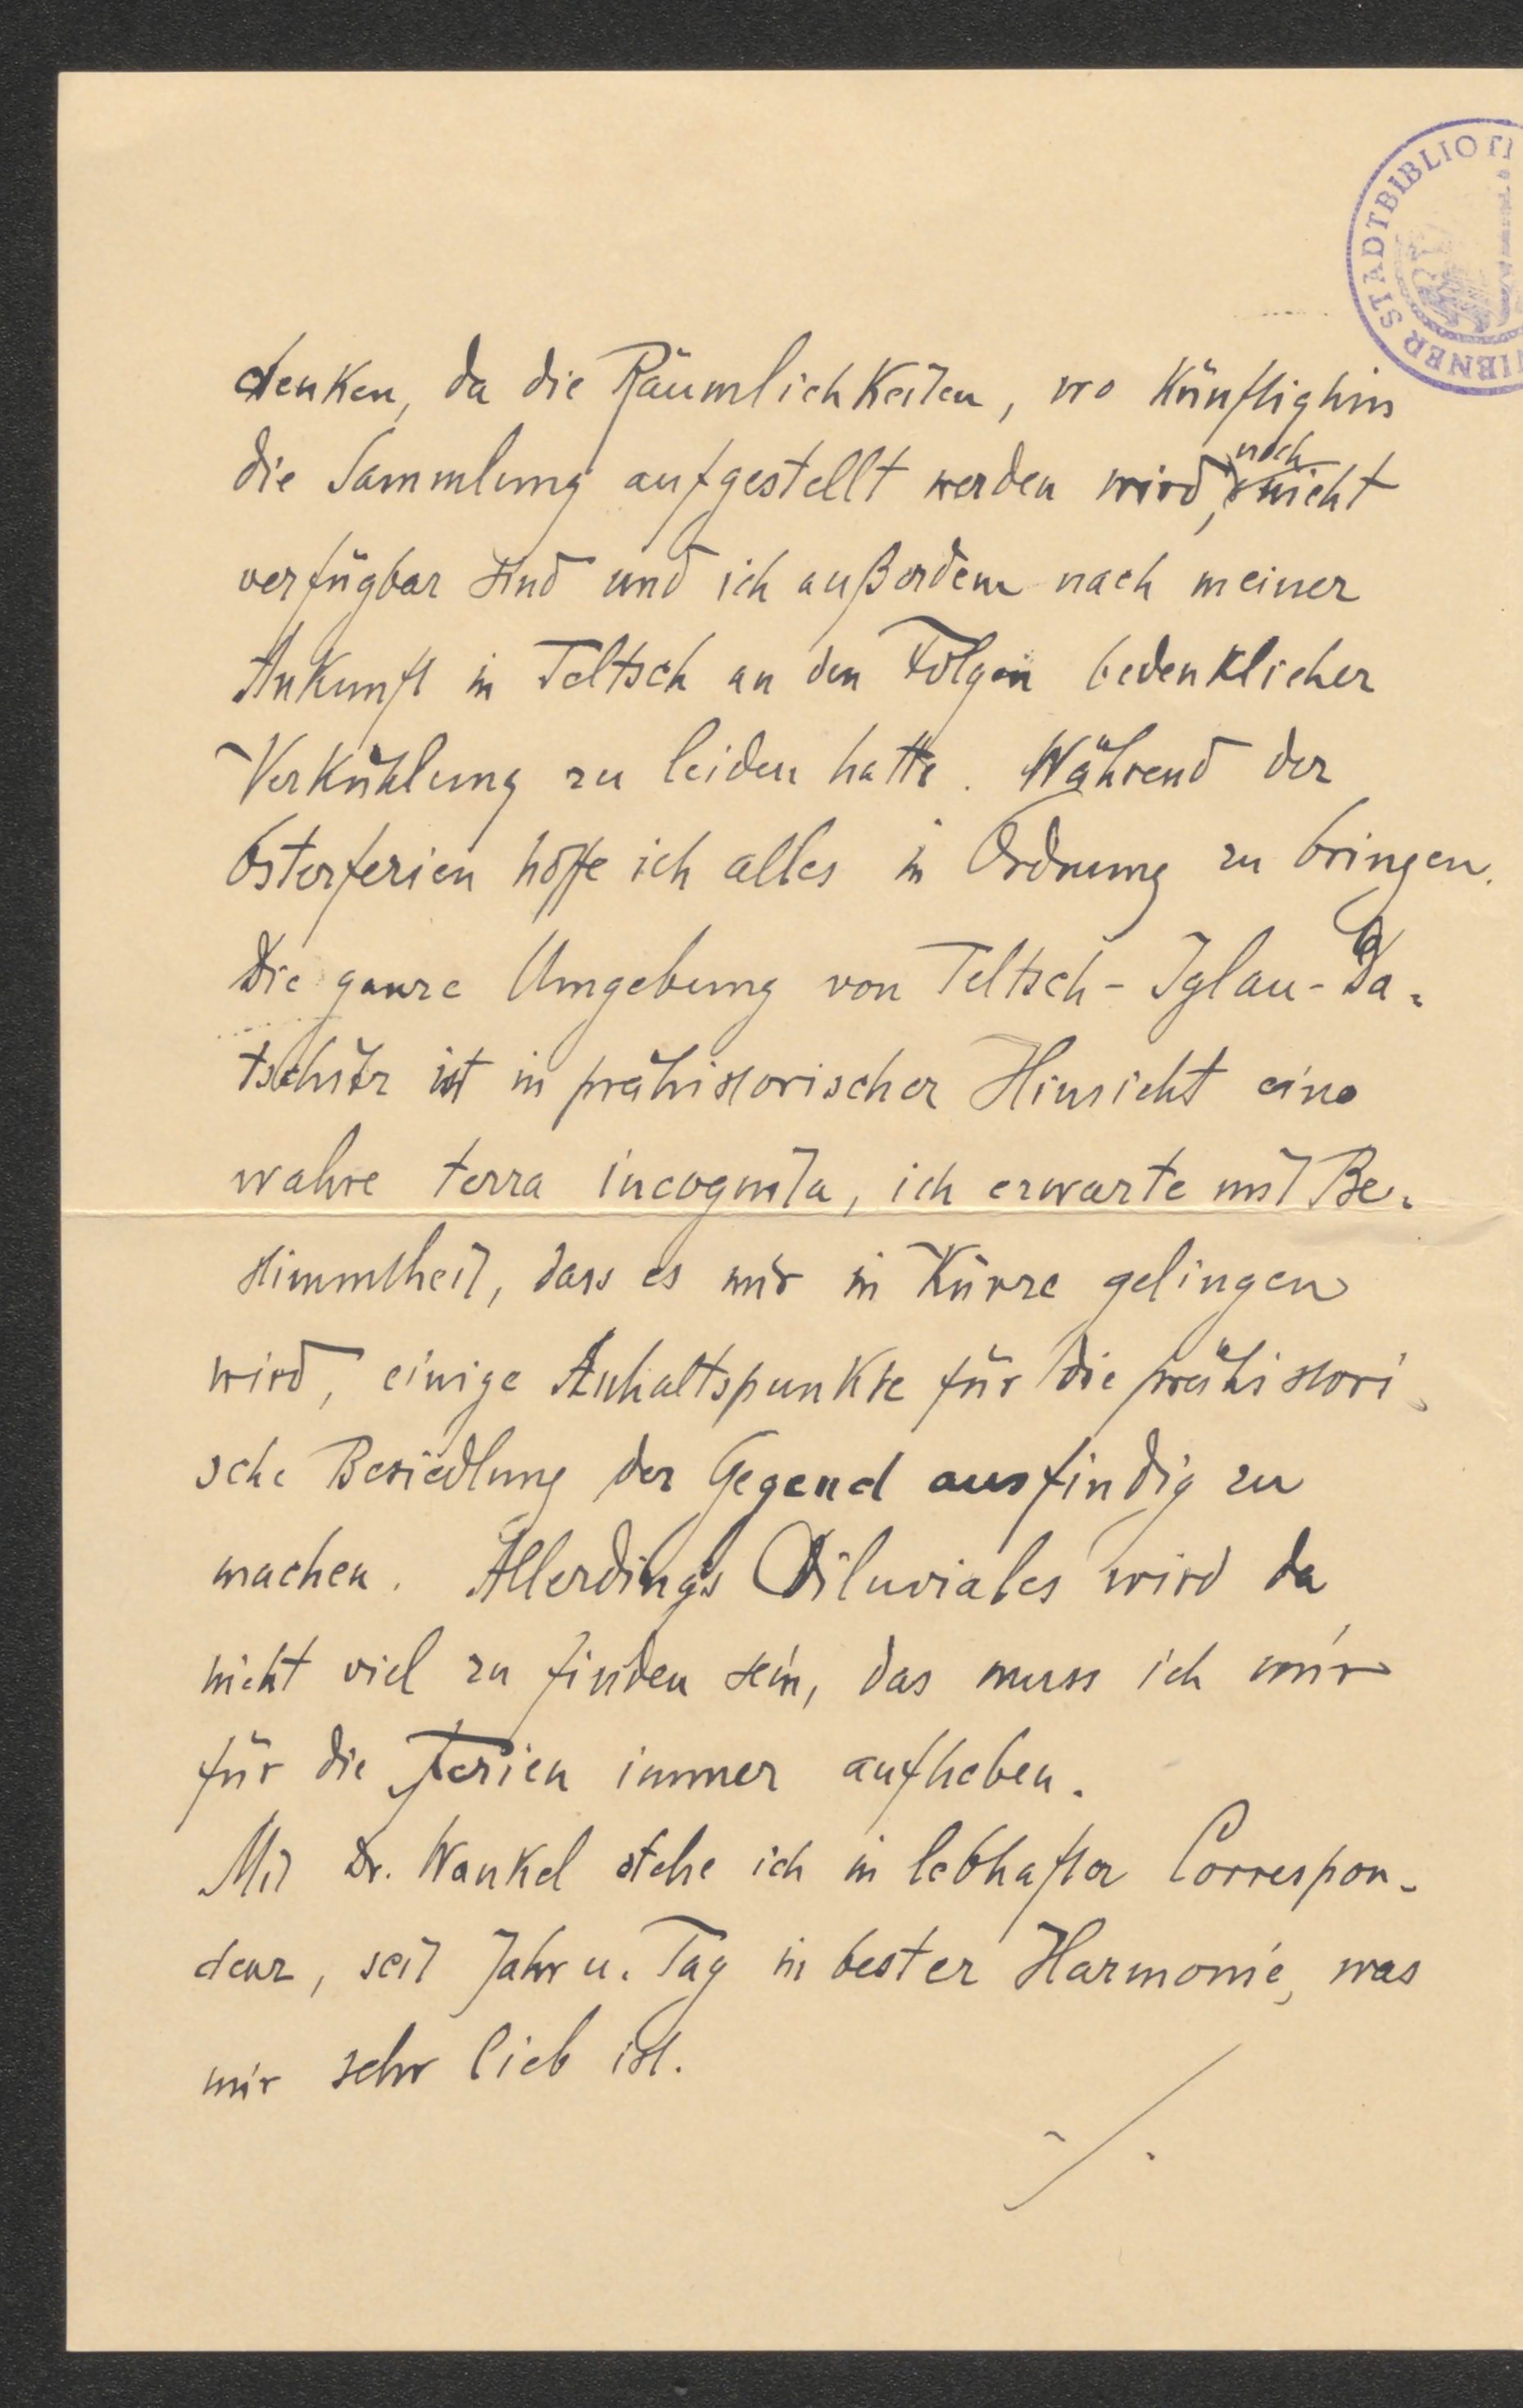 WIENER STADTBIBLIOT
denken, da die Räumlichkeiten, wo künftighin
die Sammlung aufgestellt werden wird, noch nicht
verfügbar sind und ich außerdem nach meiner
Ankunft in Teltsch an den Folgen bedenklicher
Verkühlung zu leiden hatte. Während der
Osterferien hoffe ich alles in Ordnung zu bringen.
Die ganze Umgebung von Teltsch - Iglau - Da=
tschitz ist in prähistorischer Hinsicht eine
wahre terra incognita, ich erwarte mit Be=
stimmtheit, dass es mir in Kürze gelingen
wird, einige Anhaltspunkte für die prähistori=
sche Besiedlung der Gegend ausfindig zu
machen. Allerdings Diluviales wird da
nicht viel zu finden sein, das muss ich mir
für die Ferien immer aufheben.
Mit Dr. Wankel stehe ich in lebhafter Correspon-
denz, seit Jahr u. Tag in bester Harmonie, was
mir sehr lieb ist.
./.